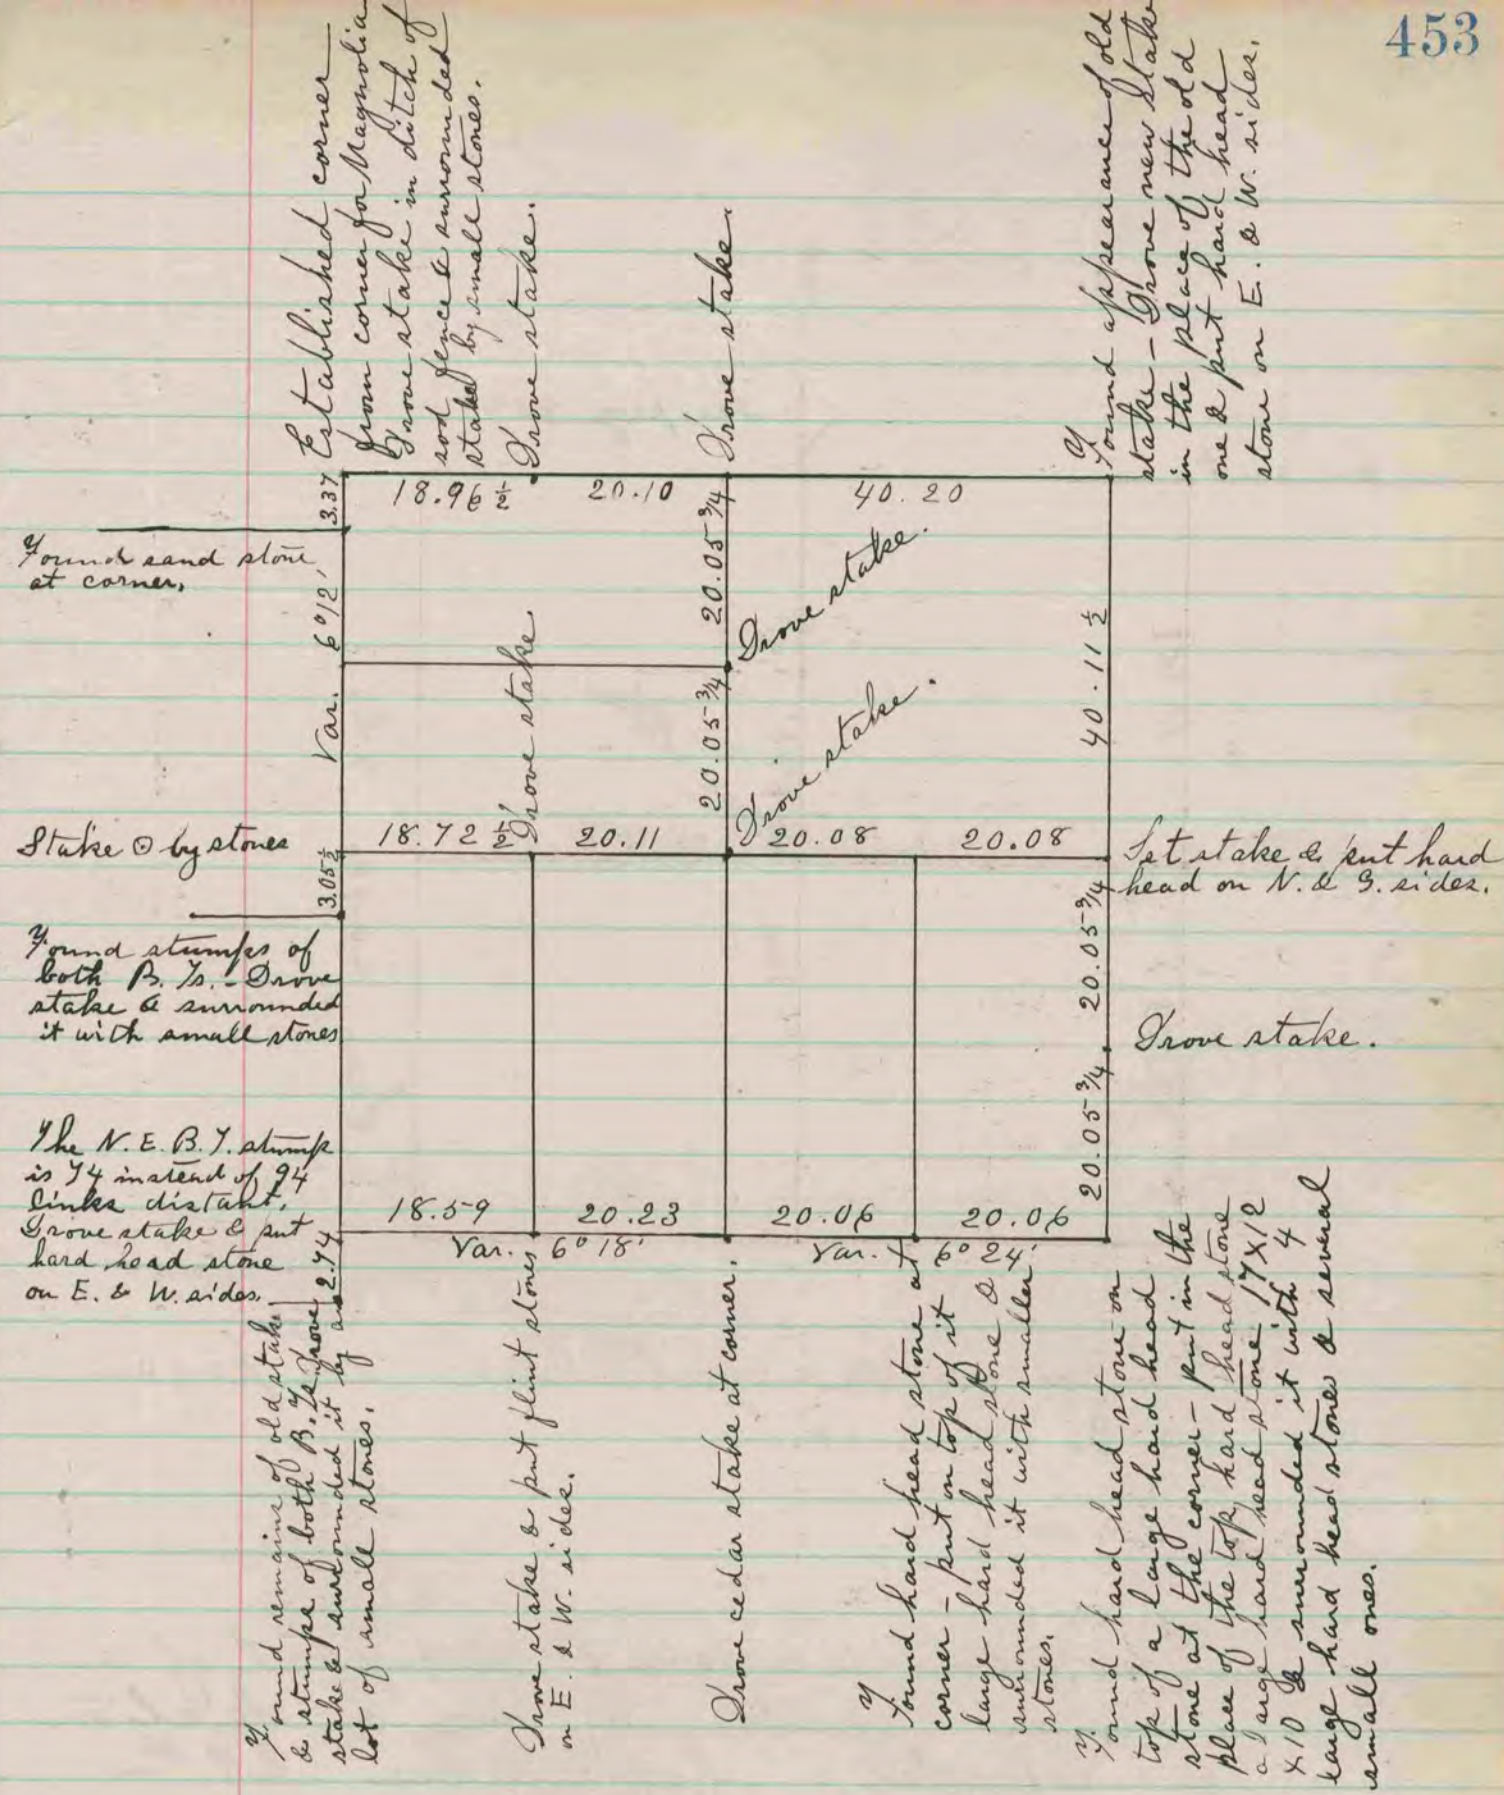 453
Established corner
from corner for Magnolia
Drove stake in ditch of
sod fence & surrounded
stake by small stones.
Drove stake.
Drove stake.
Found appearance of old
stake - Drove new stake
in the place of the old
one & put hard head
stone on E. & W. sides.
3.37
18.96 1/2
20.10
40.20
Found sand stone
at corner.
Var. 6°12'
20.05 3/4
Drove stake.
20.05 3/4
Drove stake
Drove stake.
40.11 1/2
Stake ⊙ by stones
18.72 1/2
20.11
20.08
20.08
Set stake & put hard
head on N. & S. sides.
3.05 1/2
Found stumps of
both B. Ts. - Drove
stake & surrounded
it with small stones
20.05 3/4
Drove stake.
20.05 3/4
The N. E. B. T. stump
is 74 instead of 94
links distant.
Drove stake & put
hard head stone
on E. & W. sides.
18.59
20.23
20.06
20.06
Var. 6° 18'
Var. 6° 24'
2.74
Found remains of old stake
& stumps of both B. Ts. Drove
stake & surrounded it by a
lot of small stones.
Drove stake & put flint stones
on E. & W. sides.
Drove cedar stake at corner.
Found hard head stone at
corner - put on top of it
large hard head stone &
surrounded it with smaller
stones.
Found hard head stone on
top of a large hard head
stone at the corner - put in the
place of the top hard head stone
a large hard head stone 17 X 12
X 10 & surrounded it with 4
large hard head stones & several
small ones.